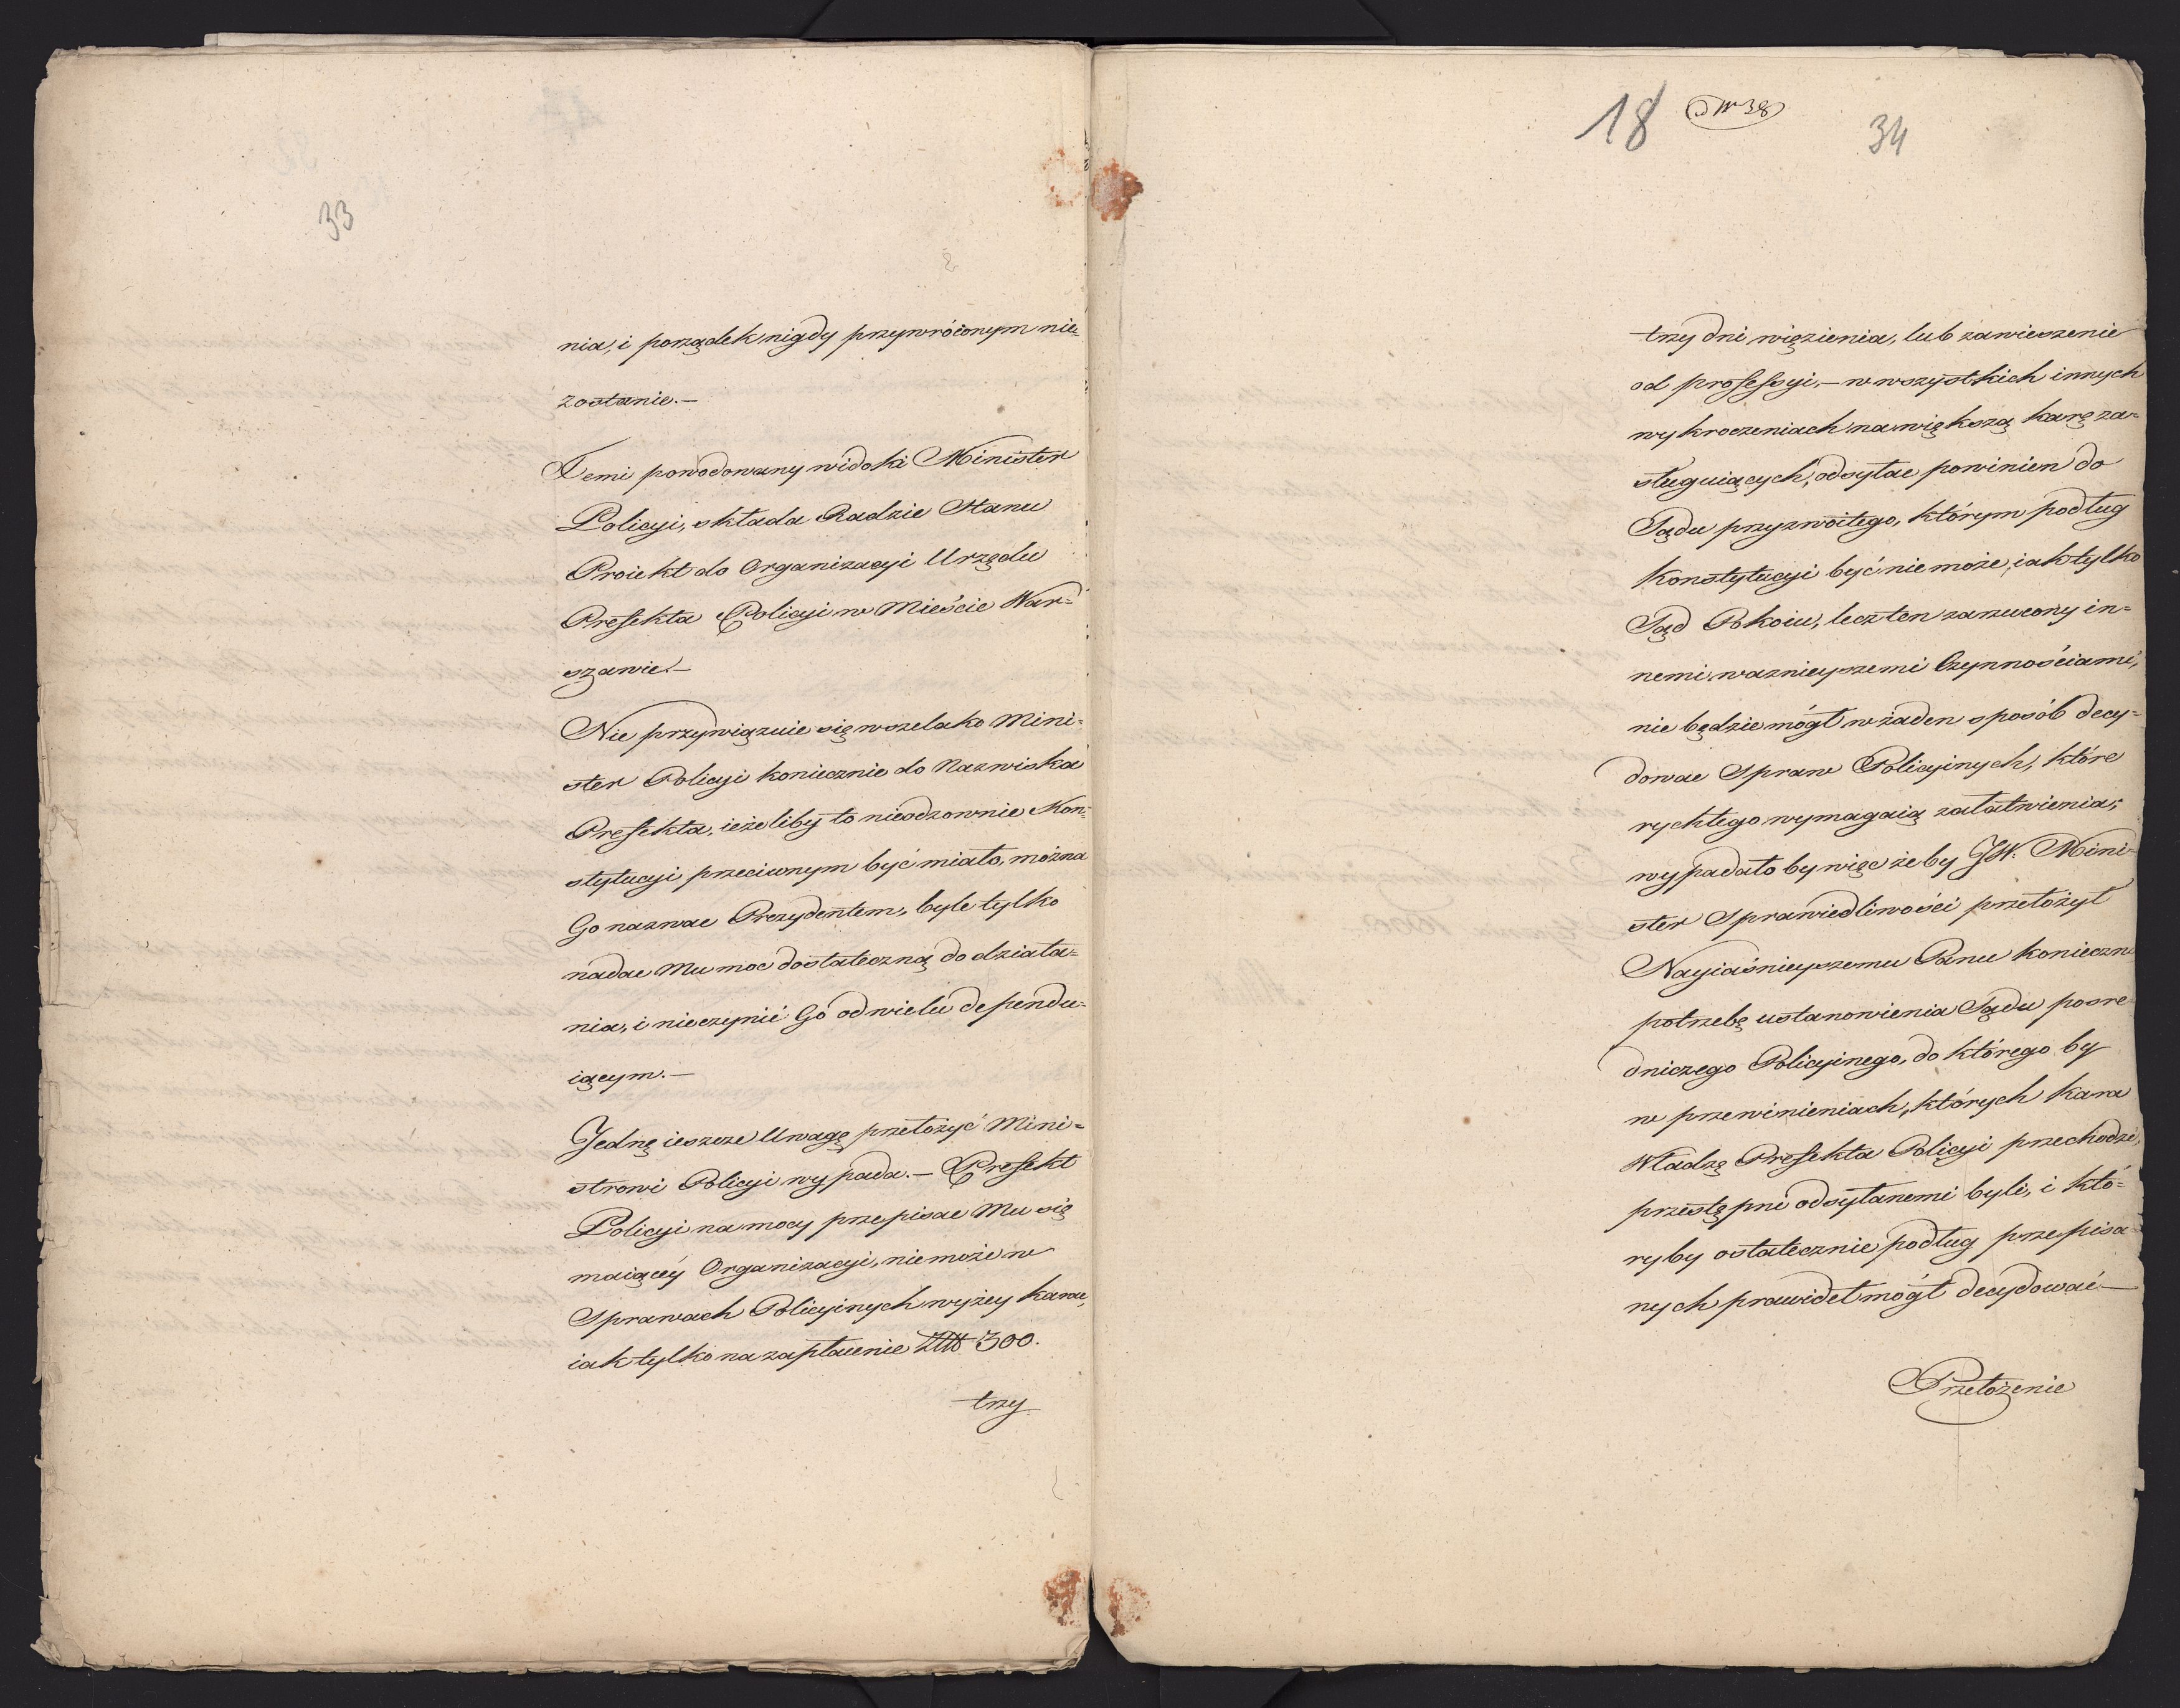 33
nia, i porządek nigdy przywróconym nie
zostanie.—
Temi powodowany widoki Minister
Policyi, składa Radzie Stanu
Proiekt do Organizacyi Urzędu
Prefekta Policyi w Mieście War=
szawie.—
Nie przywiązuie się wszelako Mini=
ster Policyi koniecznie do Nazwiska
Prefekta, ieżeliby to nieodzownie Kon=
stytucyi przeciwnym być miało, można
Go nazwac Prezydentem, byle tylko
nadac Mu moc dostateczną do działa=
nia, i nieczynić Go od wielu dependu=
iącym.—
Jednę ieszcze Uwagę przełożyć Mini=
strowi Policyi wypada.— Prefekt
Policyi na mocy przepisac Mu się
maiącéy Organizacyi, niemoże w
Sprawach Policyinych wyżey karac,
iak tylko na zapłacenie Złt 300.
trzy
18
34
trzy dni więzienia, lub zawieszenie
od professyi,— w wszystkich innych
wykroczeniach na większą karę za=
sługuiących, odsyłac powinien do
Sądu przyzwoitego, którym podług
Konstytucyi być niemoże, iak tylko
Sąd Pokoiu, lecz ten zarzucony in=
nemi ważnieyszemi Czynnościami,
nie będzie mógł w żaden sposób decy=
dowac Spraw Policyinych, które
rychłego wymagaią załatwienia;
wypadało by więc żeby JW. Mini=
ster Sprawiedliwości przełożył
Nayiaśnieyszemu Panu konieczn
potrzebę ustanowienia Sądu posre
dniczego Policyinego, do którego by
w przewinieniach, których kara
Władzę Prefekta Policyi przechodzi,
przestępni odsyłanemi byli, i któ=
ryby ostatecznie podług przepisa=
nych prawideł mógł decydować—
Przełożenie